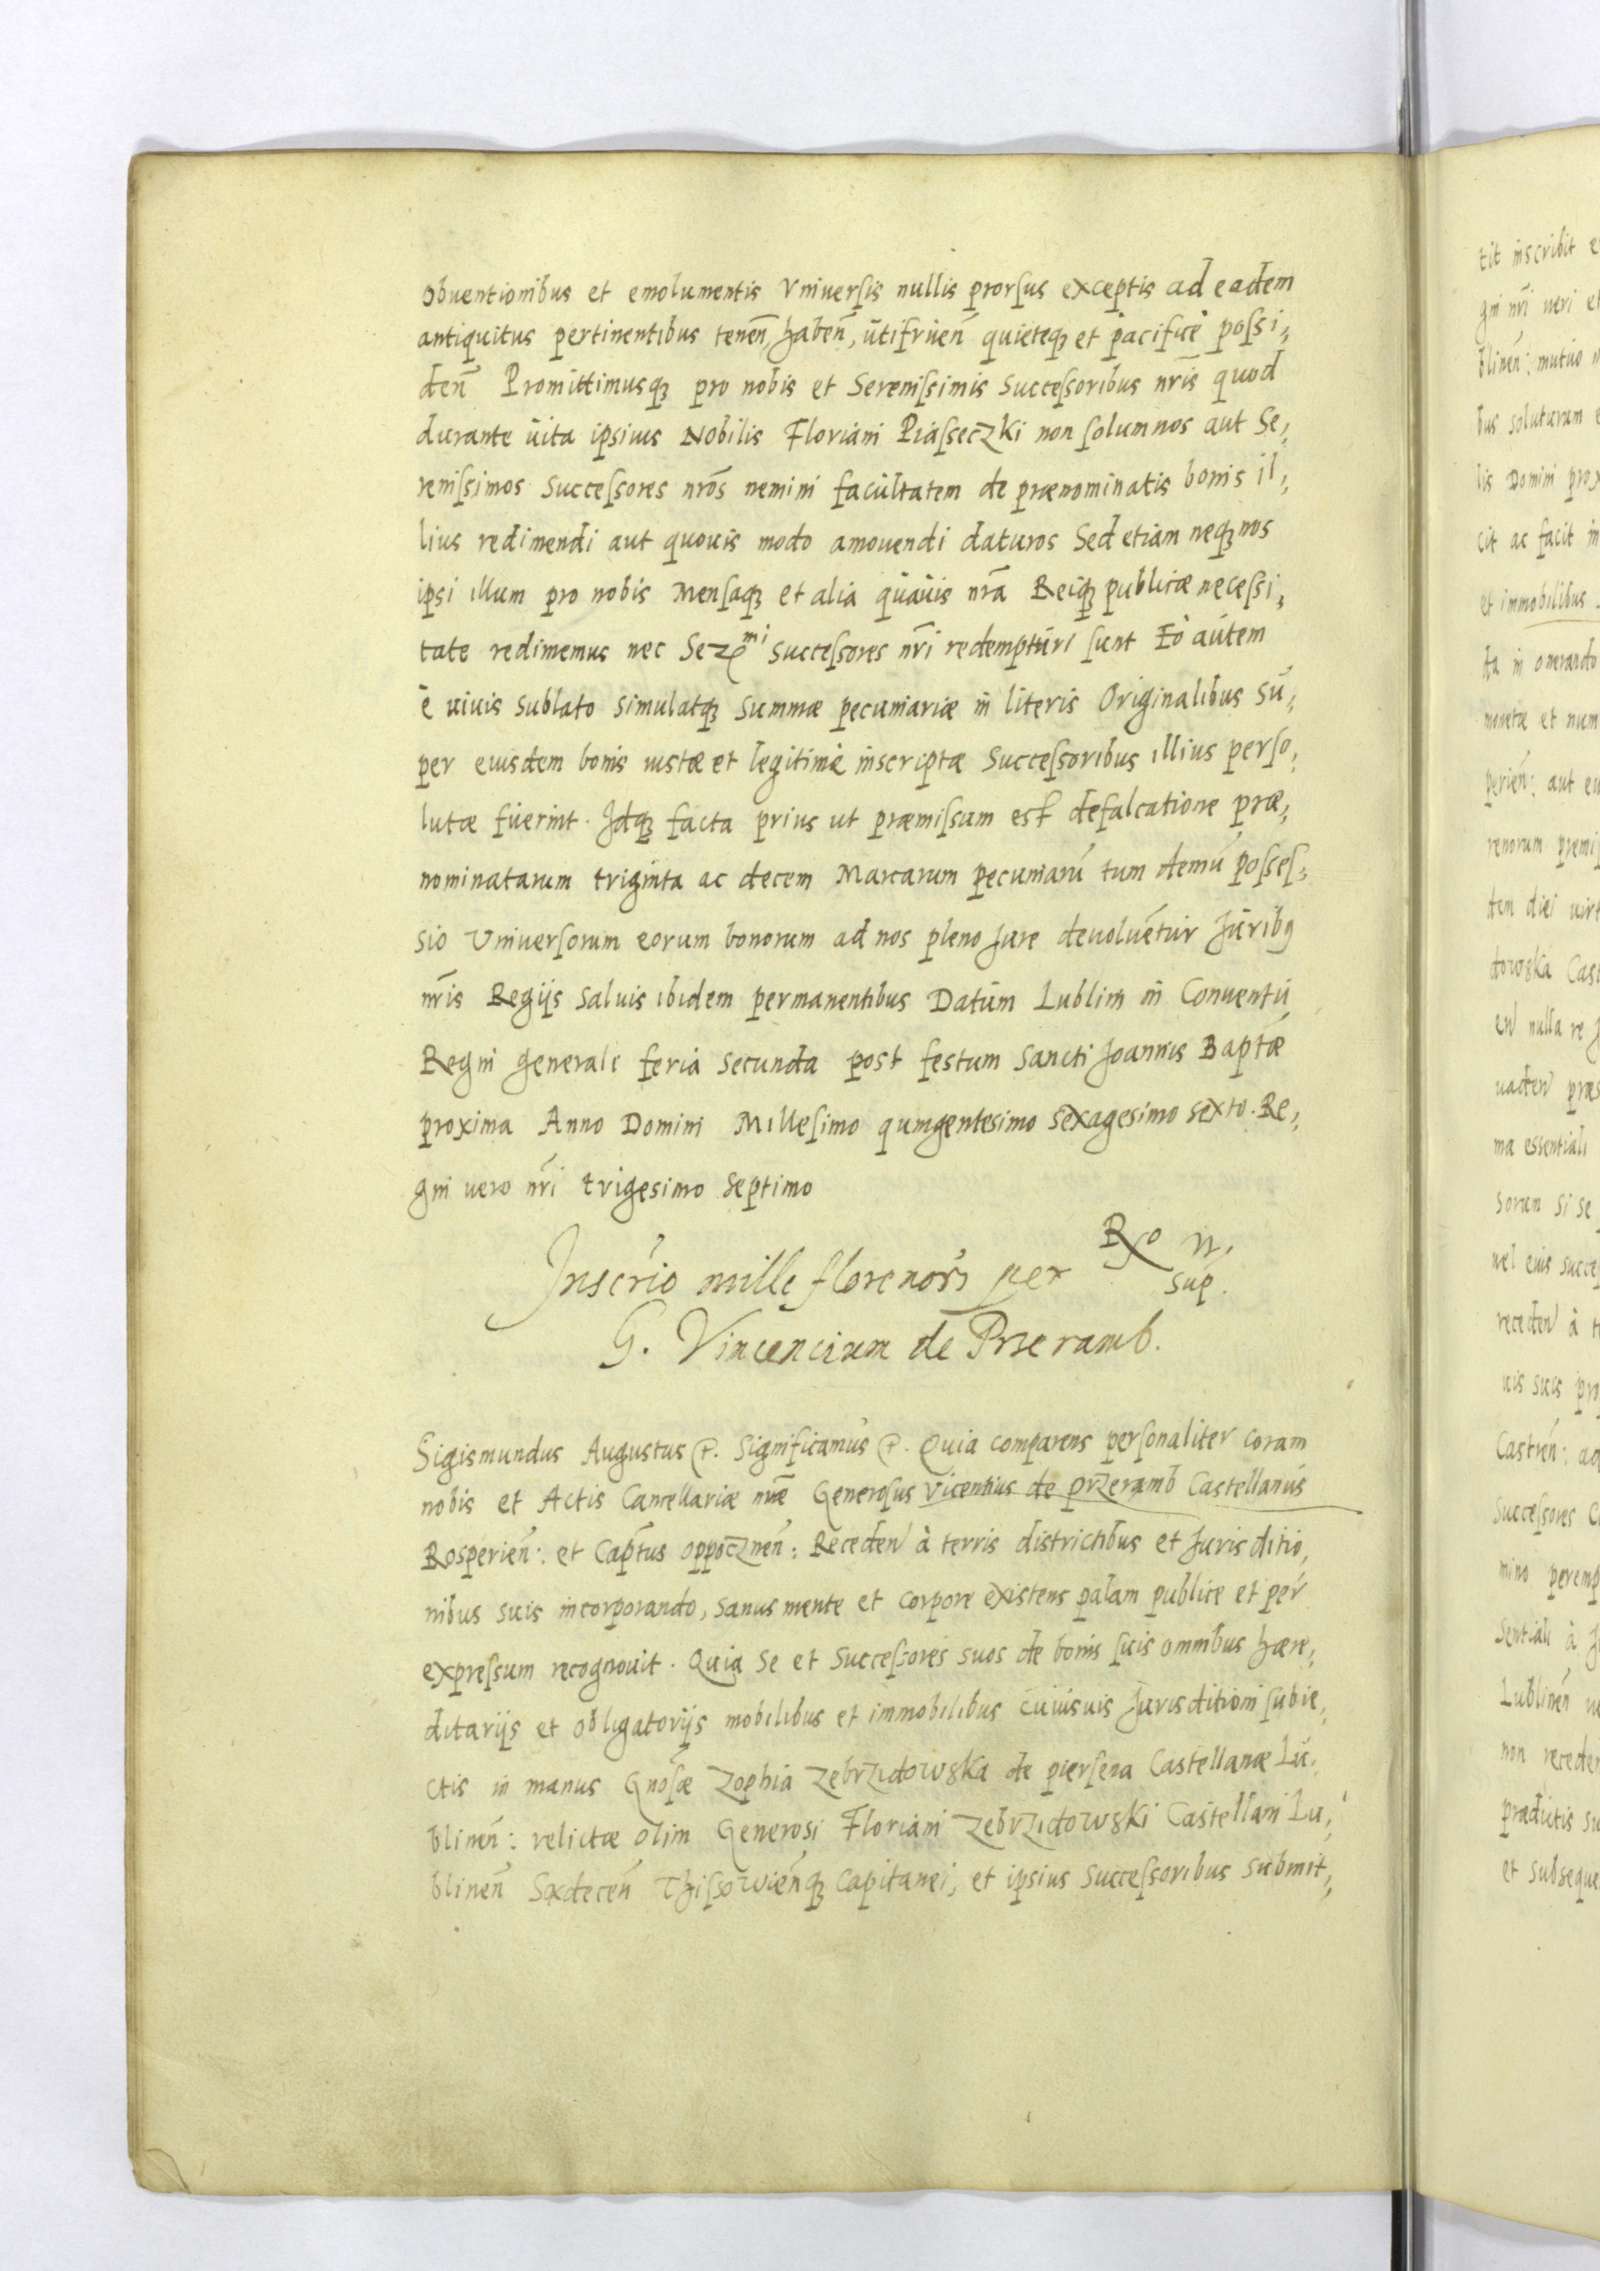 obuentionibus et emolumentis Vniuersis nullis prorsus exceptis ad eadem
antiquitus pertinentibus tenen̄, haben̄, utifruen̄ quieteq; et pacifice possi,
den̄ Promittimusq; pro nobis et Serenissimis Successoribus nr̄is quod
durante uita ipsius Nobilis Floriani Piasseczki non solum nos aut Se,
renissimos Successores nr̄os nemini facultatem de prænominatis bonis il,
lius redimendi aut quouis modo amouendi daturos Sed etiam neq; nos
ipsi illum pro nobis Mensaq; et alia quauis nr̄a Reiq; publicæ necessi,
tate redimemus nec Ser mi Successores nr̄i redempturi sunt Eo autem
è uiuis sublato simulatq; summæ pecuniariæ in literis Originalibus su,
per eiusdem bonis iustæ et legitimè inscriptæ Successoribus illius perso,
lutæ fuerint. Idq; facta prius ut præmissum est defalcatione præ,
nominatarum triginta ac decem Marcarum pecuniarū tum demū posses,
sio Vniuersorum eorum bonorum ad nos pleno Jure deuoluētur Jurib9
nr̄is Regijs saluis ibidem permanentibus Datum Lublini in Conuentu
Regni generali feria secunda post festum Sancti Joannis Baptæ
proxima Anno Domini Millesimo quingentesimo sexagesimo sexto. Re,
gni uero nr̄i trigesimo septimo
Inscrio mille florenor per Rxo n.
sup.
G. Vincencium de Przeramb.
Sigismundus Augustus &. Significamus &. Quia comparens personaliter coram
nobis et Actis Cancellariæ nr̄æ Generosus Vicentius de przeramb Castellanus
Rosperien̄: et Captus oppocznen̄: Receden̄ à terris districtibus et Jurisditio,
nibus suis incorporando, sanus mente et corpore existens palam publice et per
expressum recognouit. Quia se et successores suos de bonis suis omnibus hære,
ditarijs et obligatorijs mobilibus et immobilibus cuiusuis Jurisditioni subie,
ctis in manus Gnosæ Zophia Zebrzidowska de Castellanæ Lu,
blinen̄: relictæ olim Generosi Floriani Zebrzidowski Castellani Lu,
blinen̄ Sxdecen̄ Capitanei, et ipsius successoribus submit,